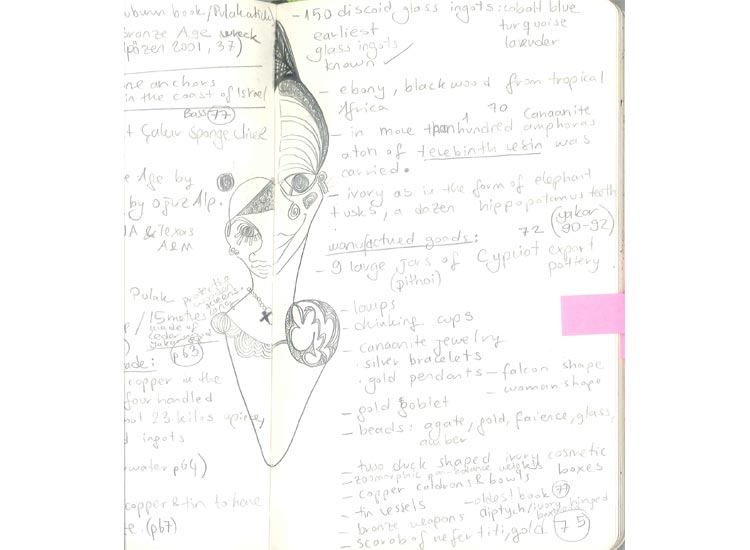 uburun book/Pulakatiıd
bronze Age wreck
2001, 37)
ne anchors
in the coast of Israel
Bass 77
+ Çakır sponge diver
e Age by
by oğuz Alp.
IA & texas
A&M
Pulak protection
/ 15 metres long
made of
cedar wood
yakar
p63
ade:
copper in the
four handled
23 kilos apiece,
d ingots
water p64)
copper & tin to have
e. (p67)
- 150 discoid glass ingots: cobalt blue
turquoise
lavender
earliest
glass ingots
known ✓
- ebony, blackwood from tropical
Africa
70
- in more than 1 hundred Canaanite amphoras
a ton of terebinth resin was
carried.
- ivory as in the form of elephant
tusks, a dozen hippopotamus teeth
72 (yakar 90-92)
manufactured goods:
- 9 large jars of Cypriot export
(pithoi) pottery
- lamps
- drinking cups
- canaanite jewelry
· silver bracelets
· gold pendants - falcon shape
- woman shape
- gold goblet
- beads: agate, gold, faience, glass,
amber
- two duck shaped ivory cosmetic
boxes
- zoomorphic pan-balance weights
- copper caldrons & bowls
- tin vessels - oldest book 77
diptych/ivory hinged
boxwood
- bronze weapons
- scarab of nefertiti, gold 75